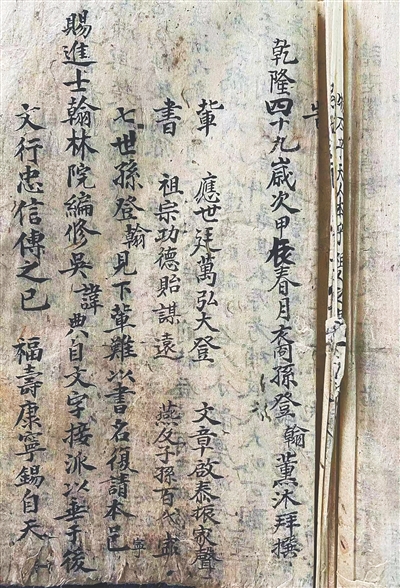 乾隆四十九歲次甲辰春月裔孫登翰薰沐拜撰
輩 應世廷萬弘大登 文章啟泰振家聲
書 祖宗功德貽謀遠 燕及子孫百代盂
七世孫登翰見下輩難以書名復請本邑
賜進士翰林院編修吳諱典自文字接派以垂于後
文行忠信傳之已 福壽康寧錫自天